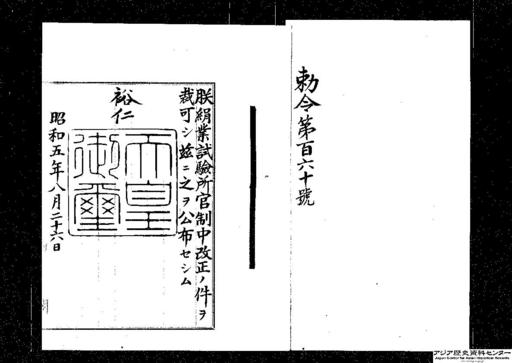 勅令第百六十號
朕絹業試驗所官制中改正ノ件ヲ
裁可シ茲ニ之ヲ公布セシム
裕仁
天皇
御璽
昭和五年八月二十六日
アジア歴史資料センター
Japan Center for Asian Historical Records